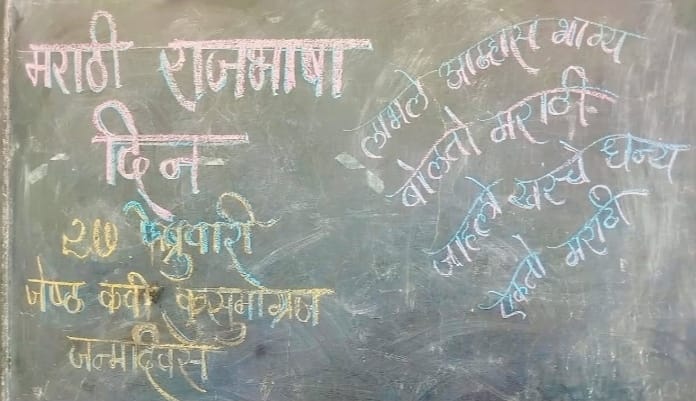 मराठी राजभाषा
दिन
२७ फेब्रुवारी
जेष्ठ कवी कुसुमाग्रज
जन्मदिवस
लाभले आम्हास भाग्य
बोलतो मराठी
जाहलो खरंचे धन्य
ऐकतो मराठी